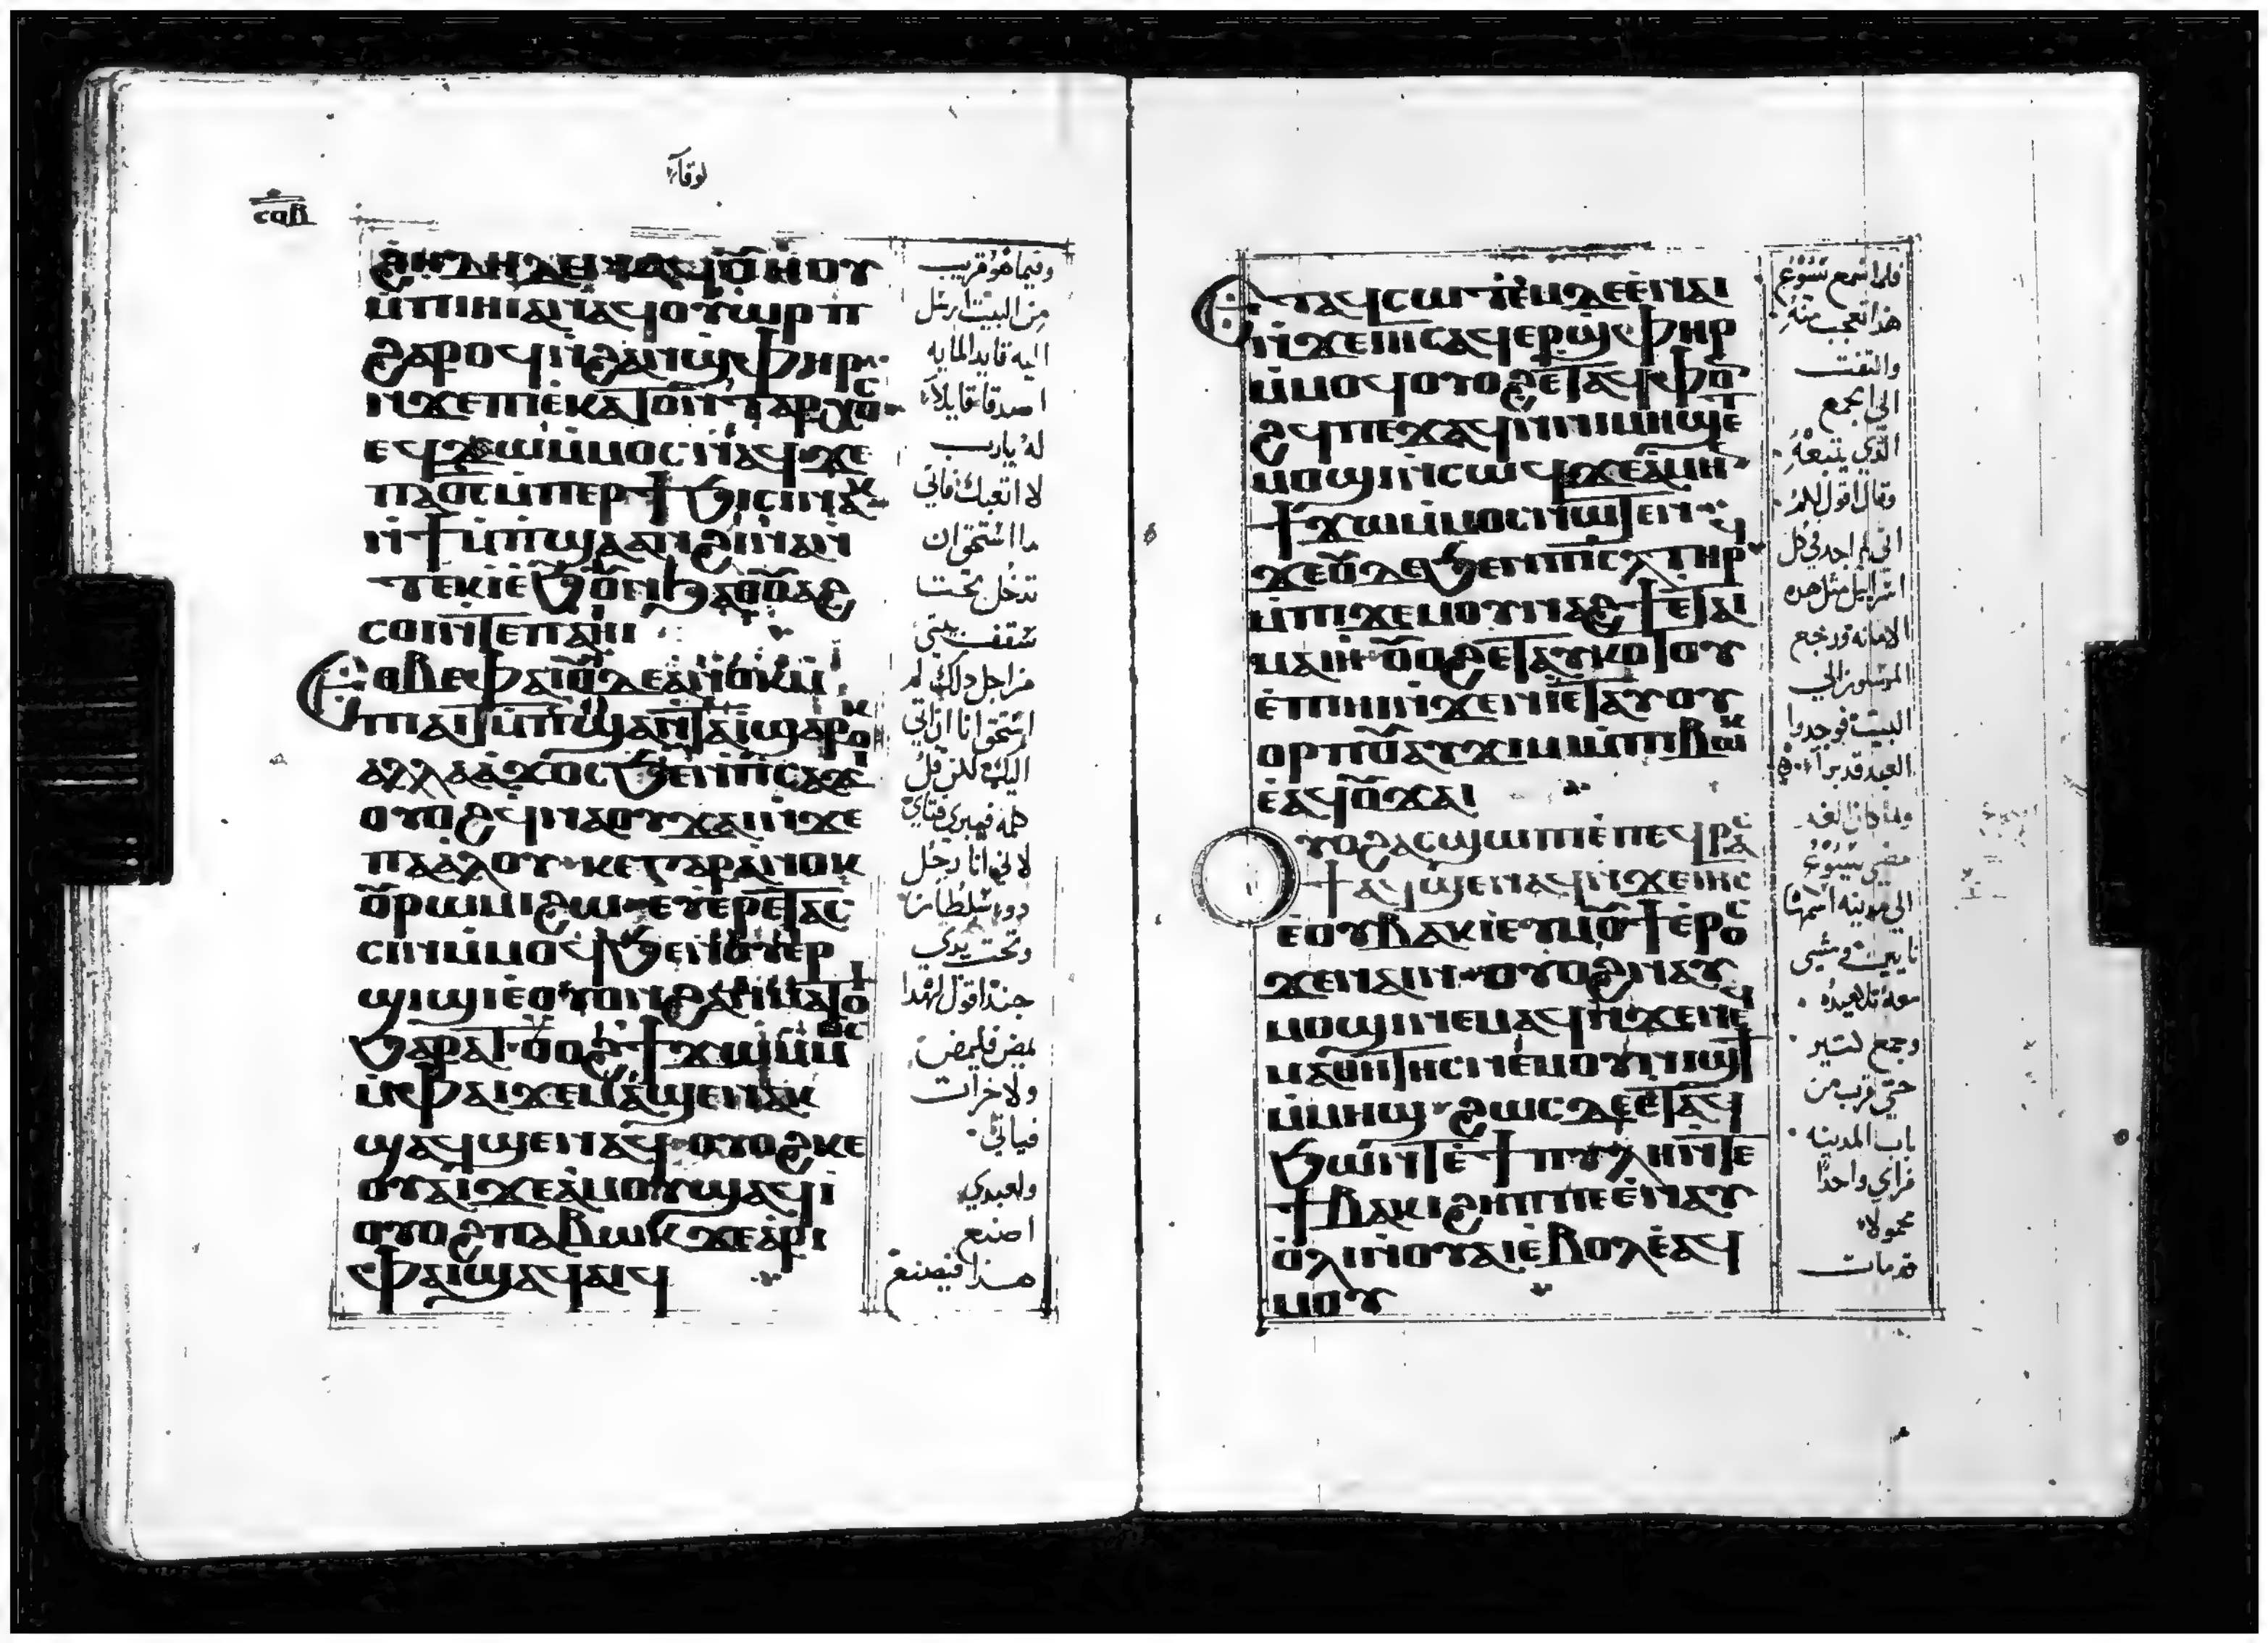 ⲥϥⲃ
لوقا
ϩⲏⲇⲏ ⲇⲉ ⲛⲁϥⲟ̅ⲏⲟⲩ
ⲙ̀ⲡⲓⲏⲓ ⲁⲛ ⲁϥⲟⲩⲱⲣⲡ
ϩⲁⲣⲟϥ ⲛ̀ϩⲁⲛϣⲫⲏⲣ
ⲛ̀ϫⲉ ⲡⲉⲕⲁⲧⲟⲛⲧⲁⲣⲭⲟⲥ
ⲉϥϫⲱ ⲙ̀ⲙⲟⲥ ⲛⲁϥ ϫⲉ
ⲡⲁⲟ̅ⲥ̅ ⲙ̀ⲡⲉⲣϯϧⲓⲥⲓ ⲛⲁⲕ
ⲛ̀ϯⲙ̀ⲡϣⲁ ⲁⲛ ϩⲓⲛⲁ ⲛ̀
ⲧⲉⲕⲓ̀ ⲉ̀ϧⲟ̅ⲛ ϧⲁ ⲟ̅ⲟ̅ⲁϩ
ⲥⲟⲓ ⲛ̀ⲧⲉ ⲡⲁⲏⲓ
Ⲉⲑⲃⲉ ⲫⲁⲓ ⲟ̅ⲇⲉ ⲁⲛⲟⲕ ⲙ̀
ⲡⲁⲓⲧⲙ̀ⲡϣⲁ ⲛ̀ⲧⲁⲓ̀ ϣⲁⲣⲟⲕ
ⲁⲗⲗⲁ ⲁ̀ϫⲟⲥ ϧⲉⲛ ⲡⲥⲁϫⲓ
ⲟⲩⲟϩ ϥⲛⲁⲟⲩϫⲁⲓ ⲛ̀ϫⲉ
ⲡⲁⲁ̀ⲗⲟⲩ ⲕⲉ ⲅⲁⲣ ⲁⲛⲟⲕ
ⲟ̅ⲣⲱⲙⲓ ϩⲱ ⲉⲩⲉⲣⲉⲧⲁⲥ
ⲥⲓⲛ ⲙ̀ⲙⲟϥ ϧⲉⲛ ⲟⲩⲉⲣ
ϣⲓϣⲓ ⲉ̀ⲟⲩⲟⲛ ϩⲁⲛⲙⲁⲧⲟⲓ
ϧⲁⲣⲁⲧ ⲟ̅ⲟϩ ϯϫⲱ ⲙ̀ⲙⲟⲥ
ⲙ̀ⲫⲁⲓ ϫⲉ ⲙⲁϣⲉⲛⲁⲕ
ϣⲁϥϣⲉⲛⲁϥ ⲟⲩⲟϩ ⲕⲉ
ⲟⲩⲁⲓ ϫⲉ ⲁ̀ⲙⲟⲩ ϣⲁϥⲓ̀
ⲟⲩⲟϩ ⲡⲁⲃⲱⲕ ϫⲉ ⲁ̀ⲣⲓ
ⲫⲁⲓ ϣⲁϥⲁⲓϥ
وفيما هو قريب
من البيت ارسل
اليه قايد المايه
اصدقا قايلا
له يارب
لا اتعبك فاني
ما استحق ان
تدخل تحت
سقف بيتي
من اجل ذلك لم
استحق انا ان اتي
اليك لكن قل
كلمه فيبرى فتاي
لاني انا رجل
ذو سلطان
وتحت يدي
جند اقول لهذا
امض فيمض
ولاخر ات
فياتي
ولعبدي
اصنع
هذا فيصنع
Ⲉⲧⲁϥⲥⲱⲧⲉⲙ ⲇⲉ ⲉ̀ⲛⲁⲓ
ⲛ̀ϫⲉ ⲓⲏⲥ ⲁϥⲉⲣϣⲫⲏⲣ
ⲙ̀ⲙⲟϥ ⲟⲩⲟϩ ⲉ̀ⲧⲁϥⲫⲟ̅
ϩϥ ⲡⲉϫⲁϥ ⲙ̀ⲡⲓⲙⲏϣ ⲉⲧ
ⲙⲟϣⲓ ⲛ̀ⲥⲱϥ ϫⲉ ⲁ̀ⲙⲏⲛ
ϯϫⲱ ⲙ̀ⲙⲟⲥ ⲛⲱⲧⲉⲛ
ϫⲉ ⲟ̅ⲇⲉ ϧⲉⲛ ⲡⲓⲥⲗ ⲧⲏⲣϥ
ⲙ̀ⲡⲓϫⲉⲙ ⲟⲩⲛⲁϩϯ ⲉ̀ⲧⲁⲓ
ⲙⲁⲓⲏ ⲟ̅ⲟϩ ⲉ̀ⲧⲁⲩⲕⲟⲧⲟⲩ
ⲉ̀ⲡⲓⲏⲓ ⲛ̀ϫⲉ ⲛⲏⲉⲧⲁⲩⲟⲩ
ⲟⲣⲡⲟ̅ ⲁⲩϫⲓⲙⲓ ⲙ̀ⲡⲓⲃⲱⲕ
ⲉ̀ⲁϥⲟ̅ϫⲁⲓ
Ⲟⲩⲟϩ ⲁⲥϣⲱⲡⲓ ⲉ̀ⲡⲉϥⲣⲁⲥ
ϯ ⲁϥϣⲉⲛⲁϥ ⲛ̀ϫⲉ ⲓⲏⲥ
ⲉ̀ⲟⲩⲃⲁⲕⲓ ⲉⲩⲙⲟ̅ϯ ⲉ̀ⲣⲟⲥ
ϫⲉ ⲛⲁⲓⲛ ⲟⲩⲟϩ ⲛⲁⲩ
ⲙⲟϣⲓ ⲛⲉⲙⲁϥ ⲛ̀ϫⲉ ⲛⲉϥ
ⲙⲁⲑⲏⲧⲏⲥ ⲛⲉⲙ ⲟⲩⲛⲓϣϯ
ⲙ̀ⲙⲏϣ ϩⲱⲥ ⲇⲉ ⲉ̀ⲧⲁϥ
ϧⲱⲛⲧ ⲉ̀ϯⲡⲩⲗⲏ ⲛ̀ⲧⲉ
ϯⲃⲁⲕⲓ ϩⲏⲡⲡⲉ ⲉ̀ⲛⲁⲩ
ⲱ̀ⲗⲓ ⲛ̀ⲟⲩⲁⲓ ⲉ̀ⲃⲟⲗ ⲉ̀ⲁϥ
ⲙⲟⲩ
فلما سمع يسوع
هذا تعجب منه
والتفت
الى الجمع
الذي يتبعه
وقال اقول لكم
اني لم اجد في كل
اسراييل مثل هذه
الامانه ورجع
المرسلون الى
البيت فوجدوا
العبد قد برا
ولما كان الغد
مضى يسوع
الى مدينه اسمها
نايين ومشى
معه تلاميذه
وجمع كثير
حتى قرب من
باب المدينه
فراى واحدا
محمولا
قد مات